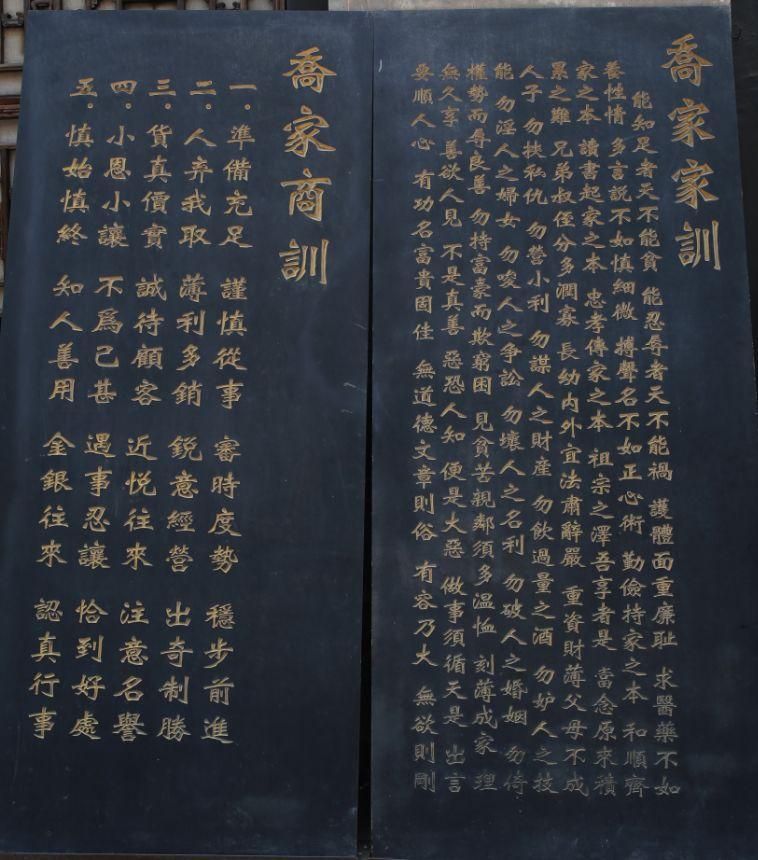 喬家家訓
能知足者天不能貧 能忍辱者天不能禍 護體面重廉耻 求醫藥不如
養性情 多言説不如慎細微 搏聲名不如正心術 勤儉持家之本 和順齊
家之本 讀書起家之本 忠孝傳家之本 祖宗之澤吾享者是 當念原來積
累之難 兄弟叔侄分多潤寡 長幼内外宜法肅辭嚴 重資財薄父母不成
人子 勿扶私仇 勿營小利 勿謀人之財産 勿飲過量之酒 勿妒人之技
能 勿淫人之婦女 勿唆人之争訟 勿壞人之名利 勿破人之婚姻 勿倚
權勢而辱良善 勿持富豪而欺窮困 見貧苦親鄰須多温恤 刻薄成家理
無久享 善欲人見 不是真善 惡恐人知 便是大惡 做事須循天是 出言
要順人心 有功名富貴固佳 無道德文章則俗 有容乃大 無欲則剛
喬家商訓
一。準備充足 謹慎從事 審時度勢 穩步前進
二。人弃我取 薄利多銷 鋭意經營 出奇制勝
三。貨真價實 誠待顧客 近悦往來 注意名譽
四。小恩小讓 不爲已甚 遇事忍讓 恰到好處
五。慎始慎終 知人善用 金銀往來 認真行事